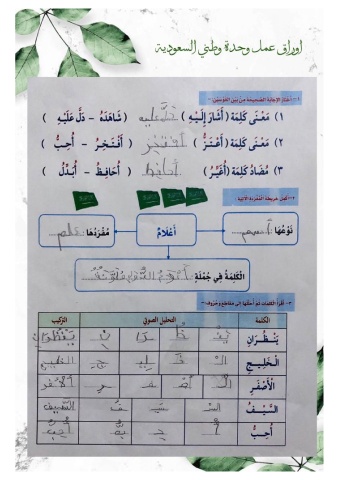 اوراق عمل وحدة وطني السعودية
١- أختار الإجابة الصحيحة من بين القوسين:
١) مَعْنَى كَلِمَة (أَشَارَ إِلَيْهِ) دَلَّ عليه ( شَاهَدَهُ - دَلَّ عَلَيْهِ )
٢) مَعْنَى كَلِمَة (أَعْتَزُّ) أفتخر ( أَفْتَخِرُ - أُحِبُّ )
٣) مُضَادُ كَلِمَة (أُغَيِّرُ) أحافظ ( أُحَافِظُ - أُبَدِّلُ )
٢- أكمل خريطة المفردة الآتية:
نَوْعُهَا: اسم
أَعْلَامٌ
مُفْرَدُهَا علم
الْكَلِمَةُ فِي جُمْلَةٍ
٣- أقرأ الكلمات ثم أحللها إلى مقاطع وحروف:
الكلمة التحليل الصوتي التركيب
يَنْظُرَانِ يَنْ ظُ رَا نِ يَنْظُرَانِ
الْخَلِيجِ الْ خَ لِي جِ الخليج
الْأَصْفَرِ الْ أَصْ فَ رِ الأصفر
السَّيْفُ السَّ سَيْ فُ السيف
أُحِبُّ أُ حِ بُّ أحب